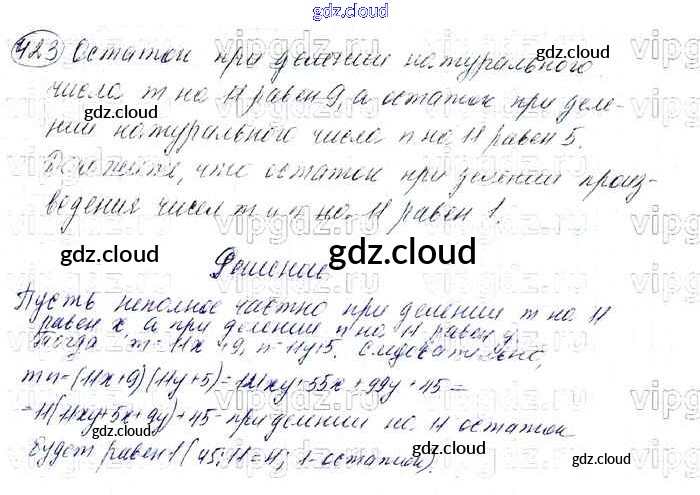 gdz.cloud
423 Остаток при делении натурального
числа m на 11 равен 9, а остаток при деле-
нии натурального числа n на 11 равен 5.
Докажите, что остаток при делении произ-
ведения чисел m и n на 11 равен 1.
Решение
Пусть неполное частно при делении m на 11
равен x, а при делении n на 11 равен y.
Тогда m=11x+9, n=11y+5. Следовательно,
mn=(11x+9)(11y+5)=121xy+55x+99y+45=
=11(11xy+5x+9y)+45 - при делении на 11 остаток
будет равен 1 (45:11=4; 1-остаток).